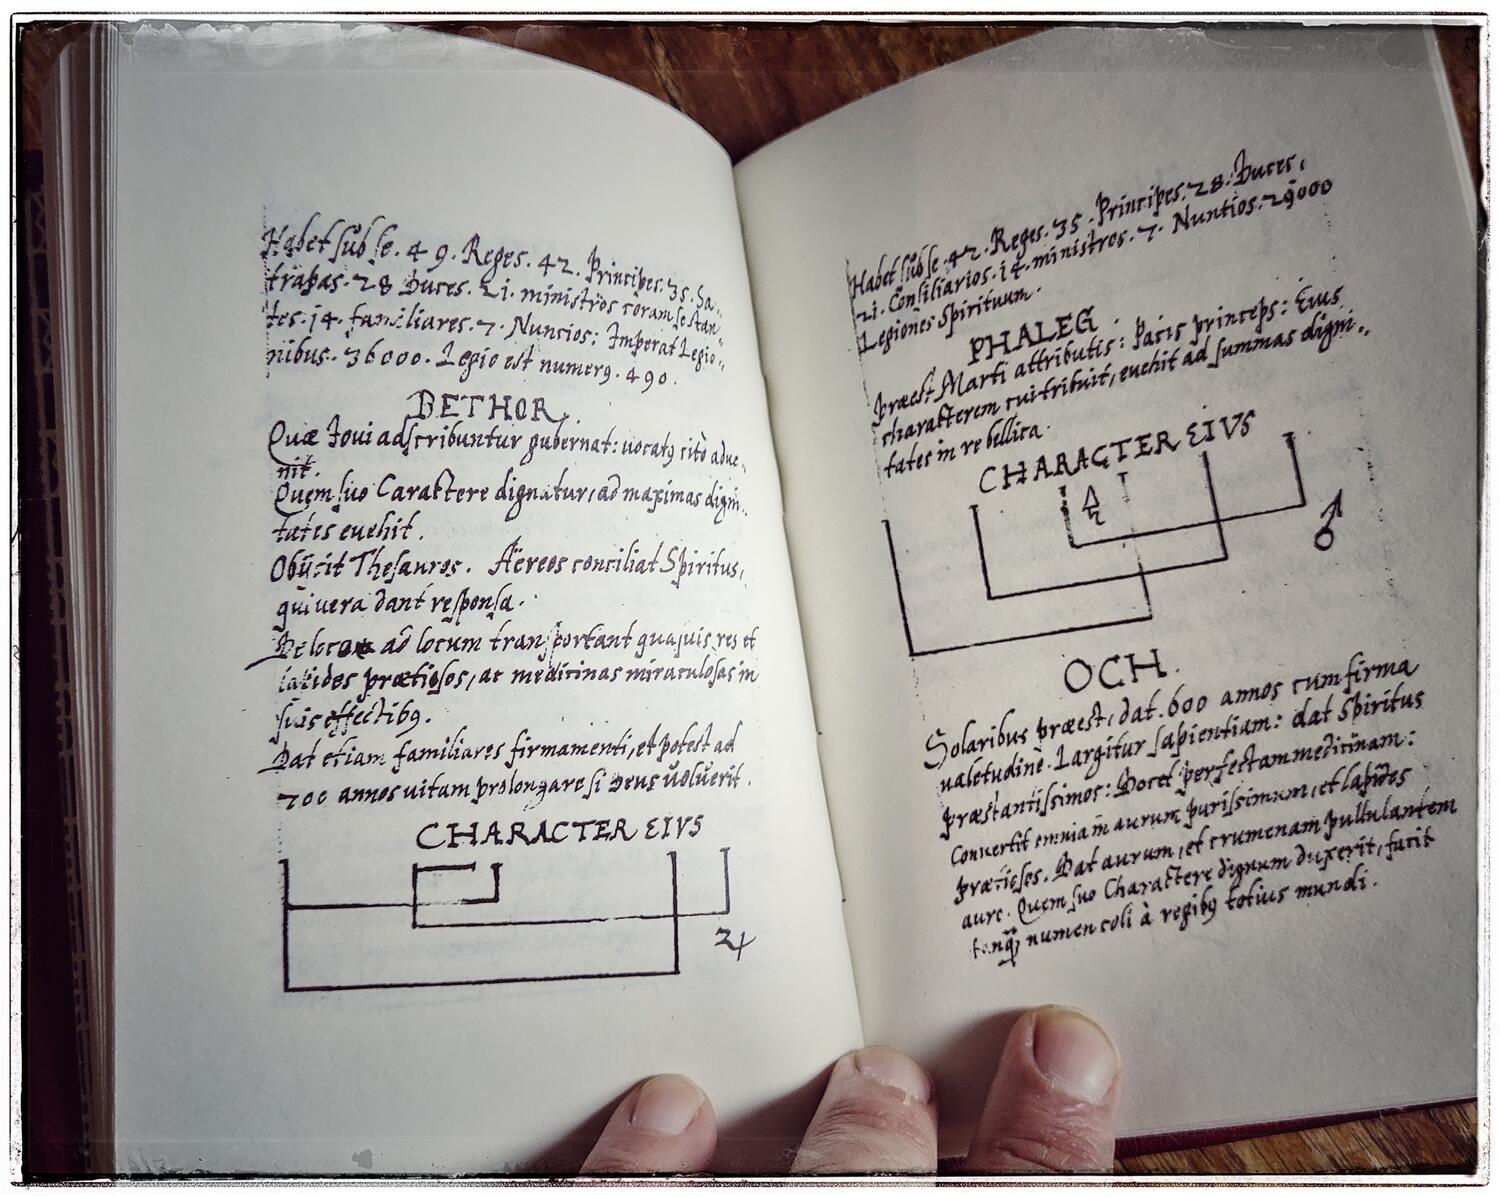 Habet sub se. 49. Reges. 42. Principes. 35. Sa„
trapas. 28 Duces. 21. ministros coram se stan„
tes. 14. familiares. 7. Nuncios: Imperat Legio„
nibus. 36000. Legio est numerꝯ. 490.
BETHOR.
Quæ Ioui adscribuntur gubernat: uocatꝯ citò adue„
nit.
Quem suo Caractere dignatur, ad maximas digni„
tates euehit.
Obijcit Thesauros. Aëreos conciliat Spiritus,
qui uera dant responsa.
De loco ad locum transportant quasuis res et
lapides prætiosos, ac medicinas miraculosas in
suis effectibꝯ.
Dat etiam familiares firmamenti, et potest ad
700 annos uitam prolongare si Deus uoluerit.
CHARACTER EIVS
♃
Habet sub se. 42. Reges. 35. Principes. 28. Duces,
21. Consiliarios. 14. ministros. 7. Nuntios. 29000
Legiones Spirituum.
PHALEG.
præest Marti attributis: Pacis princeps: Eius
characterem cui tribuit, euehit ad summas digni„
tates in re bellica.
CHARACTER EIVS
♂
OCH.
Solaribus præest, dat. 600 annos cum firma
ualetudine. Largitur sapientiam: dat Spiritus
præstantissimos: Docet perfectam medicinam:
Conuertit omnia in aurum purissimum, et lapides
prætiosos. Dat aurum, et crumenam pullulantem
auro. Quem suo Charactere dignum duxerit, facit
tanq̃ numen coli à regibꝯ totius mundi.